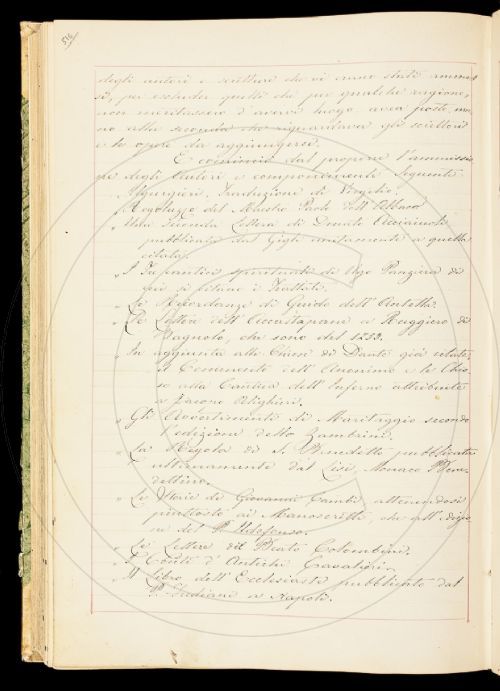 516
degli autori e scritture che vi erano stati ammes-
si, per escluder quelli che per qualche ragione,
non meritassero d'avervi luogo avea posto ma-
no alla seconda che riguardava gli scrittori
e le opere da aggiungersi.
E cominciò dal proporre l'ammissio-
ne degli Autori e componimenti seguenti
Traduzione di Virgilio.
" Regoluzze del Maestro Paolo dell'Abbaco
" Una seconda Lettera di Donato Acciaiuoli
pubblicata dal Gigli unitamente a quella
citata.
" I spirituali di Ugo Panziera di
cui si citano i Trattati.
" Le Ricordanze di Guido dell'Antella.
" Le Lettere dell' a Ruggiero di
Bagnolo, che sono del 1253.
" In aggiunta alle Chiose di Dante già citate,
il Comento dell'Anonimo e le Chio-
se alla Cantica dell'Inferno attribuite
a Jacopo Alighieri.
" Gli Avvertimenti di Maritaggio secondo
l'edizione detto Zambrini.
" La Regola di S. Benedetto pubblicata
ultimamente dal Lisi, Monaco Bene-
dettino.
" Le Storie di Giovanni Cambi, attenendosi
piuttosto ai Manoscritti, che all'
del P. Ildefonso.
" Le Lettere del Beato Colombini.
" I Conti d'Antichi Cavalieri.
" Il Libro dell'Ecclesiaste pubblicato dal
P. a Napoli.